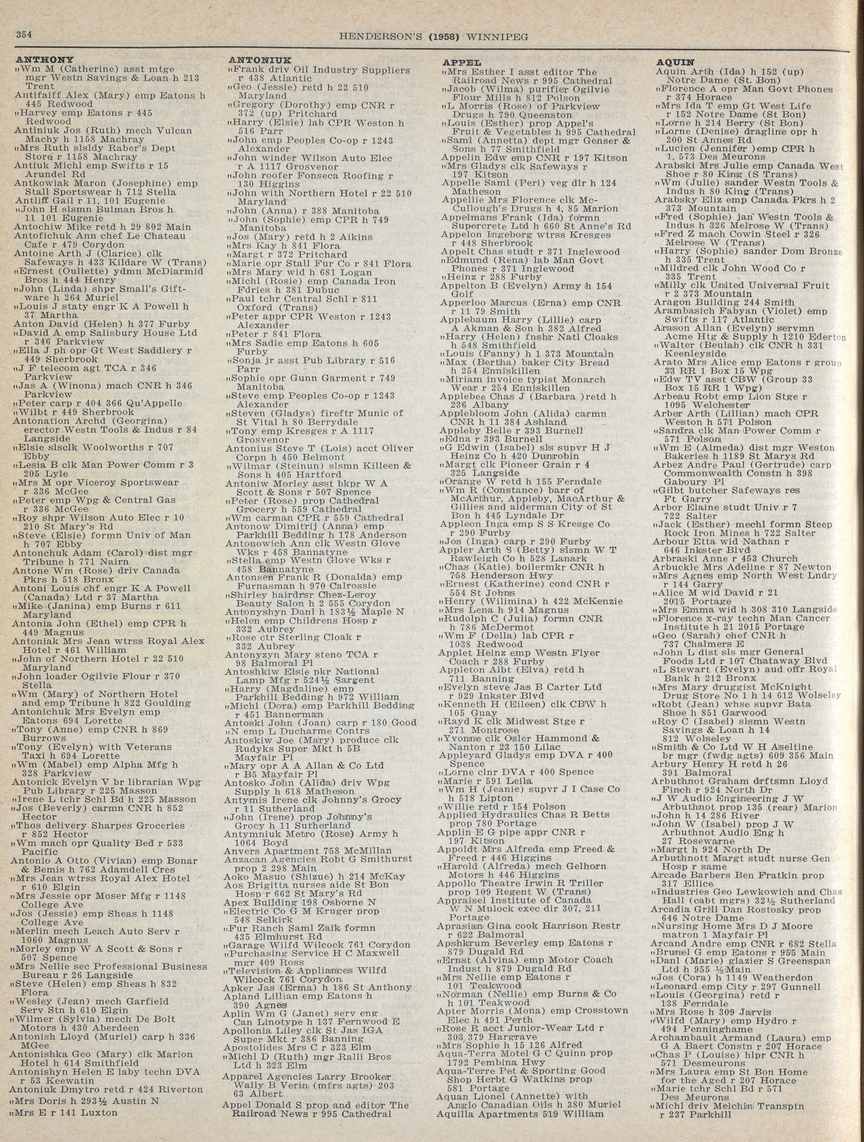 354
HENDERSON'S (1958) WINNIPEG
ANTHONY
„Wm M (Catherine) asst mtge
mgr Westn Savings & Loan h 213
Trent
Antifaiff Alex (Mary) emp Eatons h
445 Redwood
„Harvey emp Eatons r 445
Redwood
Antiniuk Jos (Ruth) mech Vulcan
Machy h 1158 Machray
„Mrs Ruth slsldy Raber's Dept
Store r 1158 Machray
Antiuk Michl emp Swifts r 15
Arundel Rd
Antkowiak Maron (Josephine) emp
Stall Sportswear h 712 Stella
Antliff Gail r 11, 101 Eugenie
„John H slsmn Bulman Bros h
11 101 Eugenie
Antochiw Mike retd h 29 802 Main
Antofichuk Ann chef Le Chateau
Cafe r 479 Corydon
Antoine Arth J (Clarice) clk
Safeways h 433 Kildare W (Trans)
„Ernest (Oullette) ydmn McDiarmid
Bros h 444 Henry
„John (Linda) shpr Small's Gift-
ware h 264 Muriel
„Louis J staty engr K A Powell h
37 Martha
Anton David (Helen) h 377 Furby
„David A emp Salisbury House Ltd
r 346 Parkview
„Ella J ph opr Gt West Saddlery r
449 Sherbrook
„J F telecom agt TCA r 346
Parkview
„Jas A (Winona) mach CNR h 346
Parkview
„Peter carp r 404 366 Qu'Appelle
„Wilbt r 449 Sherbrook
Antonation Archd (Georgina)
erector Westn Tools & Indus r 84
Langside
„Elsie slsclk Woolworths r 707
Ebby
„Lesia B clk Man Power Comm r 3
205 Lyle
„Mrs M opr Viceroy Sportswear
r 336 McGee
„Peter emp Wpg & Central Gas
r 336 McGee
„Roy shpr Wilson Auto Elec r 10
210 St Mary's Rd
„Steve (Elsie) formn Univ of Man
h 707 Ebby
Antonchuk Adam (Carol) dist mgr
Tribune h 771 Nairn
Antone Wm (Rose) driv Canada
Pkrs h 518 Bronx
Antoni Louis chf engr K A Powell
(Canada) Ltd r 37 Martha
„Mike (Janina) emp Burns r 611
Maryland
Antonia John (Ethel) emp CPR h
449 Magnus
Antoniak Mrs Jean wtrss Royal Alex
Hotel r 461 William
„John of Northern Hotel r 22 510
Maryland
„John loader Ogilvie Flour r 370
Stella
„Wm (Mary) of Northern Hotel
and emp Tribune h 822 Goulding
Antonichuk Mrs Evelyn emp
Eatons 694 Lorette
„Tony (Anne) emp CNR h 869
Burrows
„Tony (Evelyn) with Veterans
Taxi h 694 Lorette
„Wm (Mabel) emp Alpha Mfg h
328 Parkview
Antonick Evelyn V br librarian Wpg
Pub Library r 225 Masson
„Irene L tchr Schl Bd h 225 Masson
„Jos (Beverly) carmn CNR h 852
Hector
„Thos delivery Sharpes Groceries
r 852 Hector
„Wm mach opr Quality Bed r 533
Pacific
Antonio A Otto (Vivian) emp Bonar
& Bemis h 762 Adamdell Cres
„Mrs Jean wtrss Royal Alex Hotel
r 610 Elgin
„Mrs Jessie opr Moser Mfg r 1148
College Ave
„Jos (Jessie) emp Sheas h 1148
College Ave
„Merlin mech Leach Auto Serv r
1060 Magnus
„Morley emp W A Scott & Sons r
507 Spence
„Mrs Nellie sec Professional Business
Bureau r 26 Langside
„Steve (Helen) emp Sheas h 832
Flora
„Wesley (Jean) mech Garfield
Serv Stn h 610 Elgin
„Wilmer (Sylvia) mech De Bolt
Motors h 430 Aberdeen
Antonish Lloyd (Muriel) carp h 336
MGee
Antonishka Geo (Mary) clk Marion
Hotel h 614 Smithfield
Antonishyn Helen E laby techn DVA
r 53 Keewatin
Antoniuk Dmytro retd r 424 Riverton
„Mrs Doris h 293½ Austin N
„Mrs E r 141 Luxton
ANTONIUK
„Frank driv Oil Industry Suppliers
r 438 Atlantic
„Geo (Jessie) retd h 22 510
Maryland
„Gregory (Dorothy) emp CNR r
372 (up) Pritchard
„Harry (Elsie) lab CPR Weston h
516 Parr
„John emp Peoples Co-op r 1243
Alexander
„John winder Wilson Auto Elec
r A 1117 Grosvenor
„John roofer Fonseca Roofing r
130 Higgins
„John with Northern Hotel r 22 510
Maryland
„John (Anna) r 388 Manitoba
„John (Sophie) emp CPR h 749
Manitoba
„Jos (Mary) retd h 2 Aikins
„Mrs Kay h 841 Flora
„Margt r 372 Pritchard
„Marie opr Stall Fur Co r 841 Flora
„Mrs Mary wid h 681 Logan
„Michl (Rosie) emp Canada Iron
Fdries h 381 Dubuc
„Paul tchr Central Schl r 811
Oxford (Trans)
„Peter appr CPR Weston r 1243
Alexander
„Peter r 841 Flora
„Mrs Sadie emp Eatons h 605
Furby
„Sonja jr asst Pub Library r 516
Parr
„Sophie opr Gunn Garment r 749
Manitoba
„Steve emp Peoples Co-op r 1243
Alexander
„Steven (Gladys) fireftr Munic of
St Vital h 80 Berrydale
„Tony emp Kresges r A 1117
Grosvenor
Antonius Steve T (Lois) acct Oliver
Corpn h 450 Belmont
„Wilmar (Steinun) slsmn Killeen &
Sons h 405 Hartford
Antoniw Morley asst bkpr W A
Scott & Sons r 507 Spence
„Peter (Rose) prop Cathedral
Grocery h 559 Cathedral
„Wm carman CPR r 559 Cathedral
Antonow Dimitrij (Anna) emp
Parkhill Bedding h 178 Anderson
Antonowich Ann clk Westn Glove
Wks r 458 Bannatyne
„Stella emp Westn Glove Wks r
458 Bannatyne
Antonsen Frank R (Donalda) emp
Furnasman h 970 Calrossie
„Shirley hairdrsr Chez-Leroy
Beauty Salon h 2 555 Corydon
Antonyshyn Danl h 183½ Maple N
„Helen emp Childrens Hosp r
332 Aubrey
„Rose ctr Sterling Cloak r
332 Aubrey
Antonyzyn Mary steno TCA r
98 Balmoral Pl
Antoshkiw Elsie pkr National
Lamp Mfg r 524½ Sargent
„Harry (Magdaline) emp
Parkhill Bedding h 972 William
„Michl (Dora) emp Parkhill Bedding
r 451 Bannerman
Antoski John (Joan) carp r 180 Good
„N emp L Ducharme Contrs
Antoskiw Joe (Mary) produce clk
Rudyks Super Mkt h 5B
Mayfair Pl
„Mary opr A A Allan & Co Ltd
r B5 Mayfair Pl
Antosko John (Alida) driv Wpg
Supply h 618 Matheson
Antymis Irene clk Johnny's Grocy
r 11 Sutherland
„John (Irene) prop Johnny's
Grocy h 11 Sutherland
Antymniuk Metro (Rose) Army h
1064 Boyd
Anvers Apartment 758 McMillan
Anzacan Agencies Robt G Smithurst
prop 2 298 Main
Aoko Masuo (Shizue) h 214 McKay
Aos Brigitta nurses aide St Bon
Hosp r 662 St Mary's Rd
Apex Building 198 Osborne N
„Electric Co G M Kruger prop
548 Selkirk
„Fur Ranch Saml Zaik formn
435 Elmhurst Rd
„Garage Wilfd Wilcock 761 Corydon
„Purchasing Service H C Maxwell
mgr 409 Ross
„Television & Appliances Wilfd
Wilcock 761 Corydon
Apker Jas (Erma) h 186 St Anthony
Apland Lillian emp Eatons h
390 Agnes
Aplin Wm G (Janet) serv eng
Can Linotype h 137 Fernwood E
Apollonia Liley clk St Jas IGA
Super Mkt r 386 Banning
Apostolides Mrs C r 323 Elm
„Michl D (Ruth) mgr Ralli Bros
Ltd h 323 Elm
Apparel Agencies Larry Brooker
Wally B Verin (mfrs agts) 203
63 Albert
Appel Donald S prop and editor The
Railroad News r 995 Cathedral
APPEL
„Mrs Esther I asst editor The
Railroad News r 995 Cathedral
„Jacob (Wilma) purifier Ogilvie
Flour Mills h 812 Polson
„L Morris (Rose) of Parkview
Drugs h 790 Queenston
„Louis (Esther) prop Appel's
Fruit & Vegetables h 995 Cathedral
„Saml (Annetta) dept mgr Genser &
Sons h 77 Smithfield
Appelin Edw emp CNR r 197 Kitson
„Mrs Gladys clk Safeways r
197 Kitson
Appelle Saml (Peri) veg dlr h 124
Matheson
Appellie Mrs Florence clk Mc-
Cullough's Drugs h 4, 85 Marion
Appelmans Frank (Ida) formn
Supercrete Ltd h 660 St Anne's Rd
Appelon Ingeborg wtrss Kresges
r 448 Sherbrook
Appelt Chas studt r 371 Inglewood
„Edmund (Rena) lab Man Govt
Phones r 371 Inglewood
„Heinz r 288 Furby
Appelton B (Evelyn) Army h 154
Golf
Apperloo Marcus (Erna) emp CNR
r 11 79 Smith
Applebaum Harry (Lillie) carp
A Akman & Son h 382 Alfred
„Harry (Helen) fnshr Natl Cloaks
h 548 Smithfield
„Louis (Fanny) h 1 373 Mountain
„Max (Bertha) baker City Bread
h 254 Enniskillen
„Miriam invoice typist Monarch
Wear r 254 Enniskillen
Applebee Chas J (Barbara )retd h
236 Albany
Applebloom John (Alida) carmn
CNR h 11 384 Ashland
Appleby Belle r 393 Burnell
„Edna r 393 Burnell
„G Edwin (Isabel) sls supvr H J
Heinz Co h 420 Dunrobin
„Margt clk Pioneer Grain r 4
325 Langside
„Orange W retd h 155 Ferndale
„Wm R (Constance) barr of
McArthur, Appleby, MacArthur &
Gillies and alderman City of St
Bon h 445 Lyndale Dr
Appleon Inga emp S S Kresge Co
r 290 Furby
„Jos (Inga) carp r 290 Furby
Appler Arth S (Betty) slsmn W T
Rawleigh Co h 528 Lanark
„Chas (Katie) boilermkr CNR h
758 Henderson Hwy
„Ernest (Katherine) cond CNR r
554 St Johns
„Henry (Wilimina) h 422 McKenzie
„Mrs Lena h 914 Magnus
„Rudolph C (Julia) formn CNR
h 786 McDermot
„Wm F (Della) lab CPR r
1038 Redwood
Applet Heinz emp Westn Flyer
Coach r 288 Furby
Appleton Albt (Elva) retd h
711 Banning
„Evelyn steve Jas B Carter Ltd
r 929 Inkster Blvd
„Kenneth H (Eileen) clk CBW h
105 Guay
„Rayd K clk Midwest Stge r
271 Montrose
„Yvonne clk Osler Hammond &
Nanton r 23 150 Lilac
Appleyard Gladys emp DVA r 400
Spence
„Lorne clnr DVA r 400 Spence
„Marie r 591 Leila
„Wm H (Jeanie) supvr J I Case Co
h 518 Lipton
„Willie retd r 154 Polson
Applied Hydraulics Chas R Betts
prop 780 Portage
Applin E G pipe appr CNR r
197 Kitson
Appoldt Mrs Alfreda emp Freed &
Freed r 446 Higgins
„Harold (Alfreda) mech Gelhorn
Motors h 446 Higgins
Appollo Theatre Irwin R Triller
prop 109 Regent W (Trans)
Appraisel Institute of Canada
W N Mulock exec dir 307, 211
Portage
Aprasian Gina cook Harrison Restr
r 622 Balmoral
Apshkrum Beverley emp Eatons r
879 Dugald Rd
„Ernst (Alvina) emp Motor Coach
Indust h 879 Dugald Rd
„Mrs Nellie emp Eatons r
101 Teakwood
„Norman (Nellie) emp Burns & Co
h 101 Teakwood
Apter Morris (Mona) emp Crosstown
Elec h 491 Perth
„Rose R acct Junior-Wear Ltd r
303, 379 Hargrave
„Mrs Sophie h 15 126 Alfred
Aqua-Terra Motel G C Quinn prop
1792 Pembina Hwy
Aqua-Terre Pet & Sporting Good
Shop Herbt G Watkins prop
581 Portage
Aquan Lionel (Annette) with
Anglo Canadian Oils h 380 Muriel
Aquilla Apartments 519 William
AQUIN
Aquin Arth (Ida) h 152 (up)
Notre Dame (St. Bon)
„Florence A opr Man Govt Phones
r 374 Horace
„Mrs Ida T emp Gt West Life
r 152 Notre Dame (St Bon)
„Lorne h 214 Berry (St Bon)
„Lorne (Denise) dragline opr h
200 St Annes Rd
„Lucien (Jennifer )emp CPR h
1, 573 Des Meurons
Arabski Mrs Julie emp Canada West
Shoe r 80 King (S Trans)
„Wm (Julie) sander Westn Tools &
Indus h 80 King (Trans)
Arabsky Eliz emp Canada Pkrs h 2
373 Mountain
„Fred (Sophie) jan Westn Tools &
Indus h 326 Melrose W (Trans)
„Fred Z mach Cowin Steel r 326
Melrose W (Trans)
„Harry (Sophie) sander Dom Bronze
h 335 Trent
„Mildred clk John Wood Co r
335 Trent
„Milly clk United Universal Fruit
r 2 373 Mountain
Aragon Building 244 Smith
Arambasich Fabyan (Violet) emp
Swifts r 117 Atlantic
Arason Allan (Evelyn) servmn
Acme Htg & Supply h 1210 Ederton
„Walter (Beulah) clk CNR h 331
Keenleyside
Arato Mrs Alice emp Eatons r group
33 RR 1 Box 15 Wpg
„Edw TV asst CBW (Group 33
Box 15 RR 1 Wpg)
Arbeau Robt emp Lion Stge r
1095 Welchester
Arber Arth (Lillian) mach CPR
Weston h 571 Polson
„Sandra clk Man Power Comm r
571 Polson
„Wm E (Almeda) dist mgr Weston
Bakeries h 1189 St Marys Rd
Arbez Andre Paul (Gertrude) carp
Commonwealth Constn h 398
Gaboury Pl
„Gilbt butcher Safeways res
Ft Garry
Arbor Elaine studt Univ r 7
722 Salter
„Jack (Esther) mechl formn Steep
Rock Iron Mines h 722 Salter
Arbour Etta wid Nathan r
646 Inkster Blvd
Arbraski Anne r 453 Church
Arbuckle Mrs Adeline r 87 Newton
„Mrs Agnes emp North West Lndry
r 144 Garry
„Alice M wid David r 21
2015 Portage
„Mrs Emma wid h 308 310 Langside
„Florence x-ray techn Man Cancer
Institute h 21 2015 Portage
„Geo (Sarah) chef CNR h
737 Chalmers E
„John L dist sls mgr General
Foods Ltd r 107 Chataway Blvd
„L Stewart (Evelyn) aud offr Royal
Bank h 212 Bronx
„Mrs Mary druggist McKnight
Drug Store No 1 h 14 612 Wolseley
„Robt (Jean) whse supvr Bata
Shoe h 851 Garwood
„Roy C (Isabel) slsmn Westn
Savings & Loan h 14
812 Wolseley
„Smith & Co Ltd W H Aseltine
br mgr (fwdg agts) 609 356 Main
Arbury Henry H retd h 26
391 Balmoral
Arbuthnot Graham drftsmn Lloyd
Finch r 924 North Dr
„J W Audio Engineering J W
Arbuthnot prop 135 (rear) Marion
„John h 14 286 River
„John W (Isabel) prop J W
Arbuthnot Audio Eng h
27 Rosewarne
„Margt h 924 North Dr
Arbuthnott Margt studt nurse Gen
Hosp r same
Arcade Barbers Ben Fratkin prop
317 Ellice
„Industries Geo Lewkowich and Chas
Hall (cabt mgrs) 32½ Sutherland
Arcadia Grill Dan Rostosky prop
646 Notre Dame
„Nursing Home Mrs D J Moore
matron 1 Mayfair Pl
Arcand Andre emp CNR r 682 Stella
„Brunel G emp Eatons r 955 Main
„Danl (Marie) glazier S Greenspan
Ltd h 955 ½Main
„Jos (Cora) h 1149 Weatherdon
„Leonard emp City r 297 Gunnell
„Louis (Georgina) retd r
138 Ferndale
„Mrs Rose h 309 Jarvis
„Wilfd (Mary) emp Hydro r
494 Penninghame
Archambault Armand (Laura) emp
G A Baert Constn r 207 Horace
„Chas P (Louise) hlpr CNR h
571 Desmeurons
„Mrs Laura emp St Bon Home
for the Aged r 207 Horace
„Marie tchr Schl Bd r 571
Des Meurons
„Michl driv Melchin Transptn
r 237 Parkhill